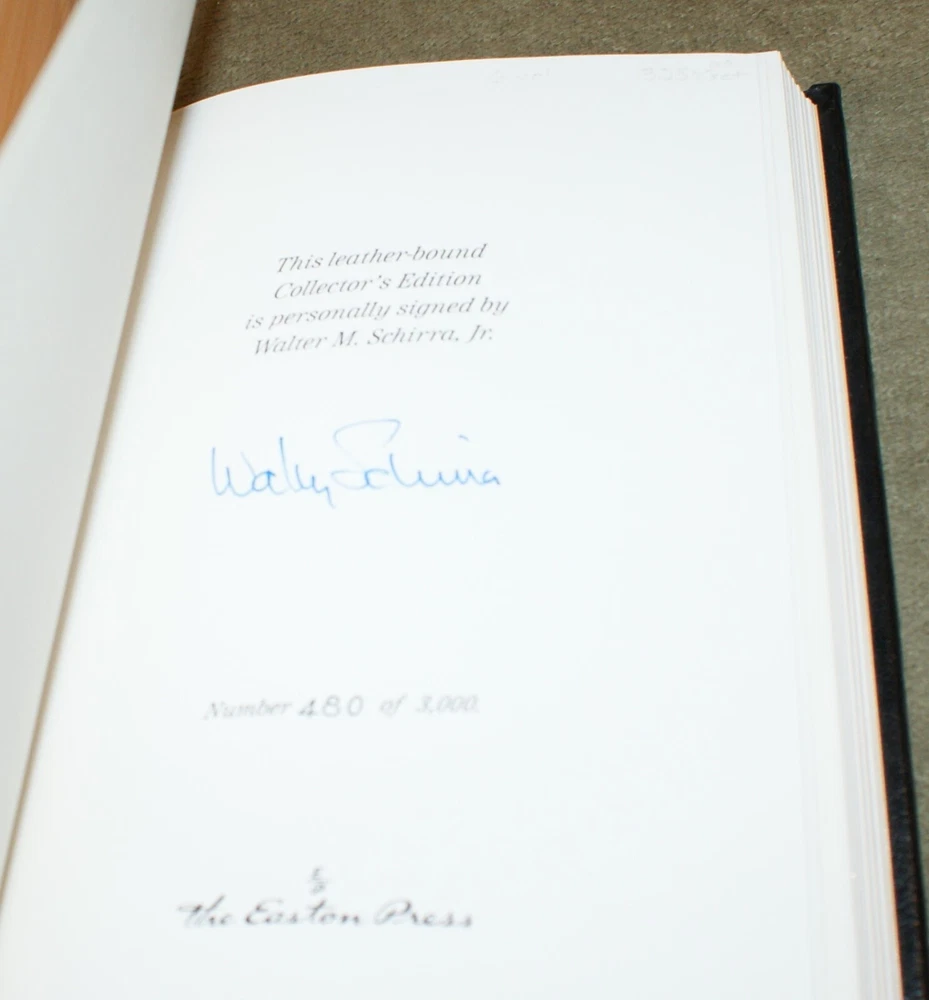 This leather-bound
Collector's Edition
is personally signed by
Walter M. Schirra, Jr.
Wally Schirra
Number 480 of 3,000.
The Easton Press